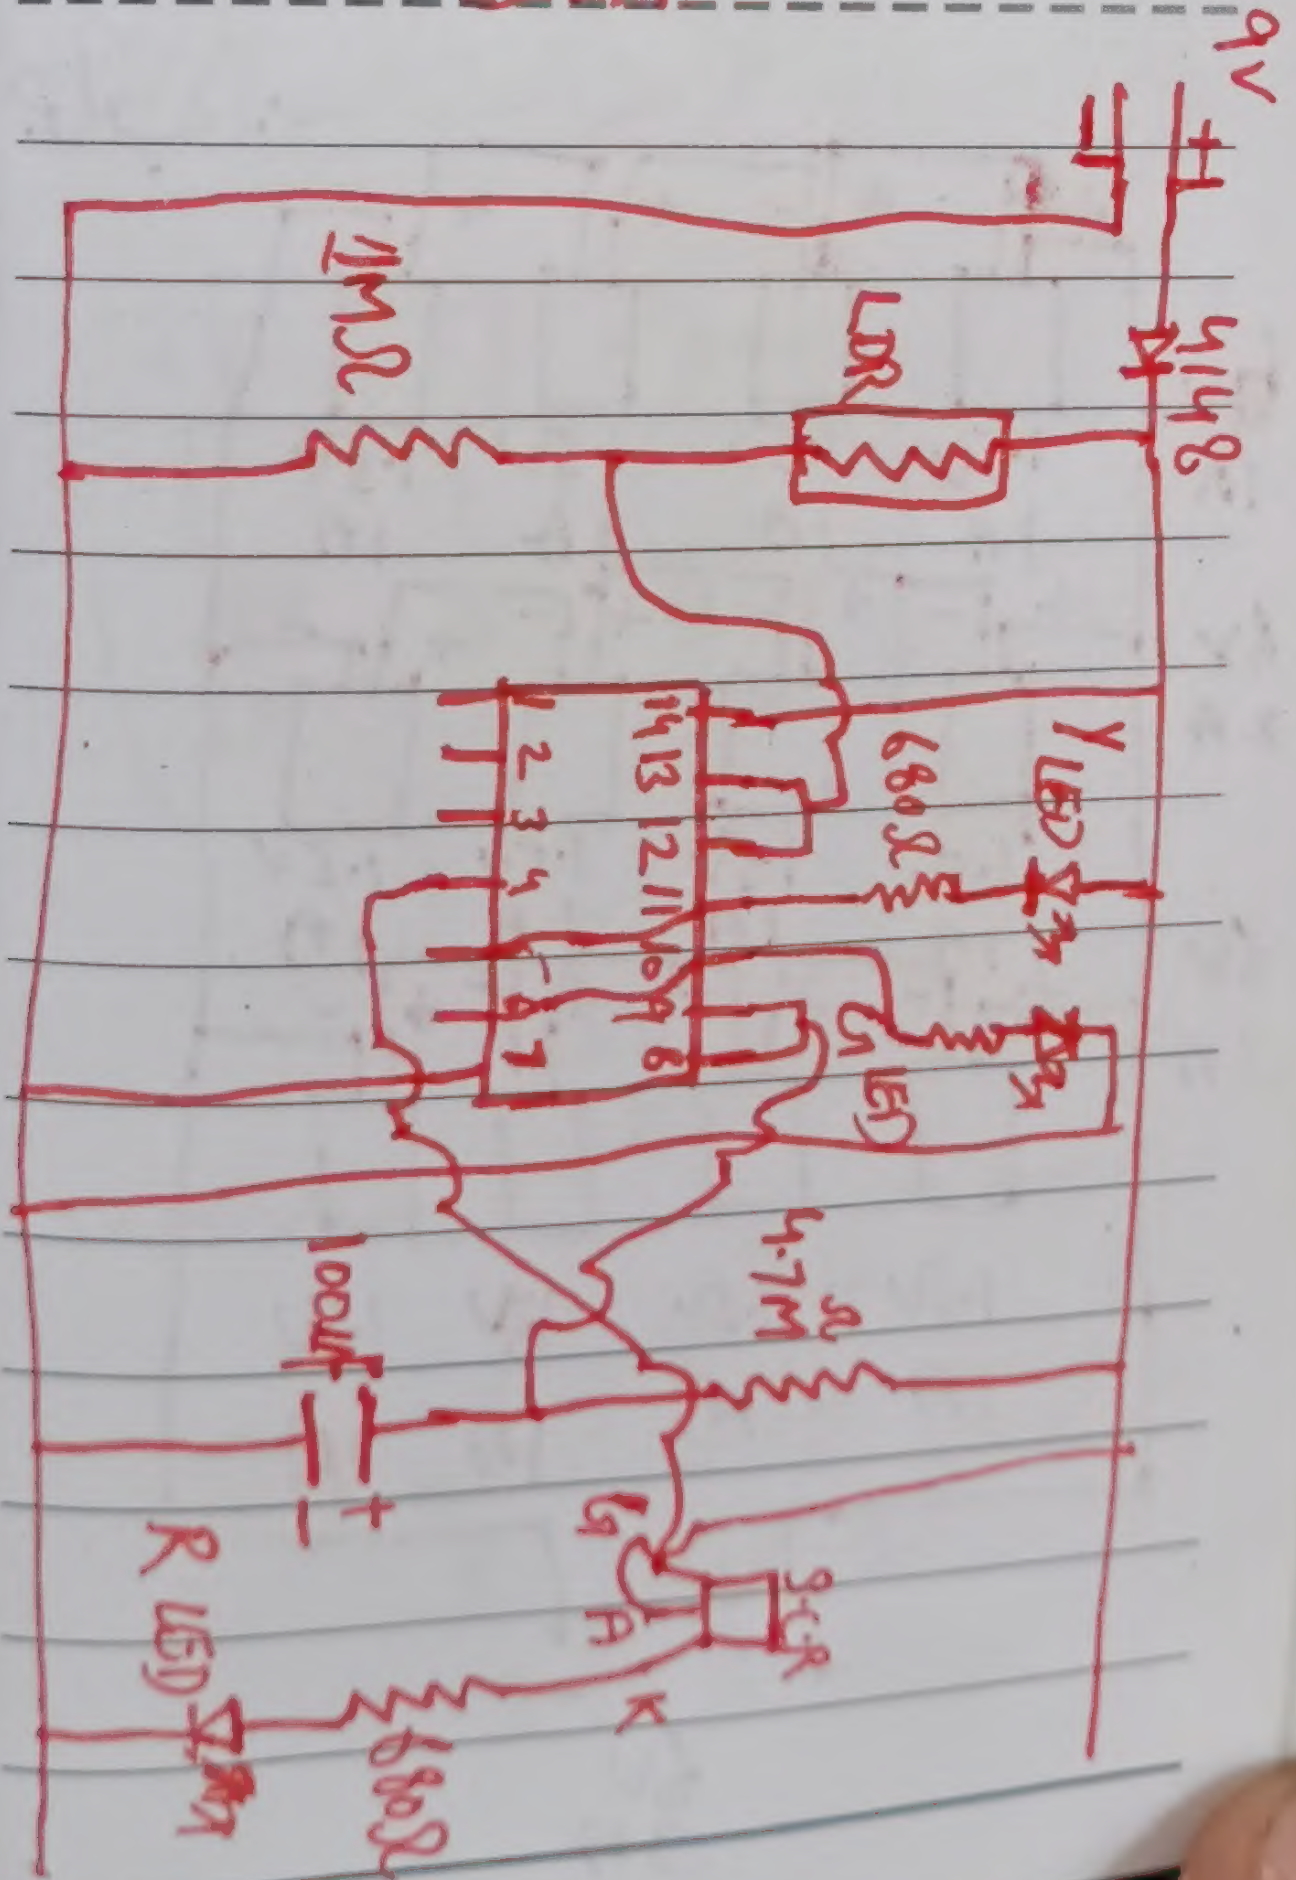 9V
+
-
4148
LDR
1MΩ
Y LED
680Ω
14 13 12 11 10 9 8
1 2 3 4 5 6 7
G LED
4.7MΩ
100μf
+
-
S.C.R
G
A
K
R LED
680Ω